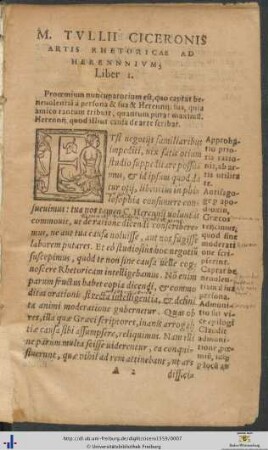 M. TVLLII CICERONIS
ARTIS RHETORICAE AD
HERENNIVM,
Liber I.
Prooemium nuncupatorium est, quo captat be-
neuolentiā à persona & sua & Herennij: sua, quia
amico tantum tribuit, quantum putat maximū:
Herennij, quod illius causa de arte scribat.
ETSI negotijs familiaribus
impediti, vix satis otium
studio suppeditare possu-
mus, & id ipsum quod da
tur otij, libentius in philo
sophia consumere con-
sueuimus: tua nos tamen C. Herenni voluntas
commouit, ut de ratione dicendi conscribere
mus, ne aut tua causa noluisse, aut nos fugisse
laborem putares. Et eò studiosius hoc negotiū
suscepimus, quòd te non sine causa uelle cog-
noscere Rhetoricam intelligebamus. Nō enim
parum fructus habet copia dicendi, & commo
ditas orationis, si recta intelligentia, & defini
ta animi moderatione gubernetur. Quas ob
res, illa quae Graeci scriptores, inanis arrogā
tiae causa sibi assumpsere, reliquimus. Nam illi
ne parum multa scisse uiderentur, ea conqui-
sierunt, quae nihil ad rem attinebant, ut ars
A 2 difficia
http://dl.ub.uni-freiburg.de/diglit/cicero1559/0007
© Universitätsbibliothek Freiburg
Baden-Württemberg